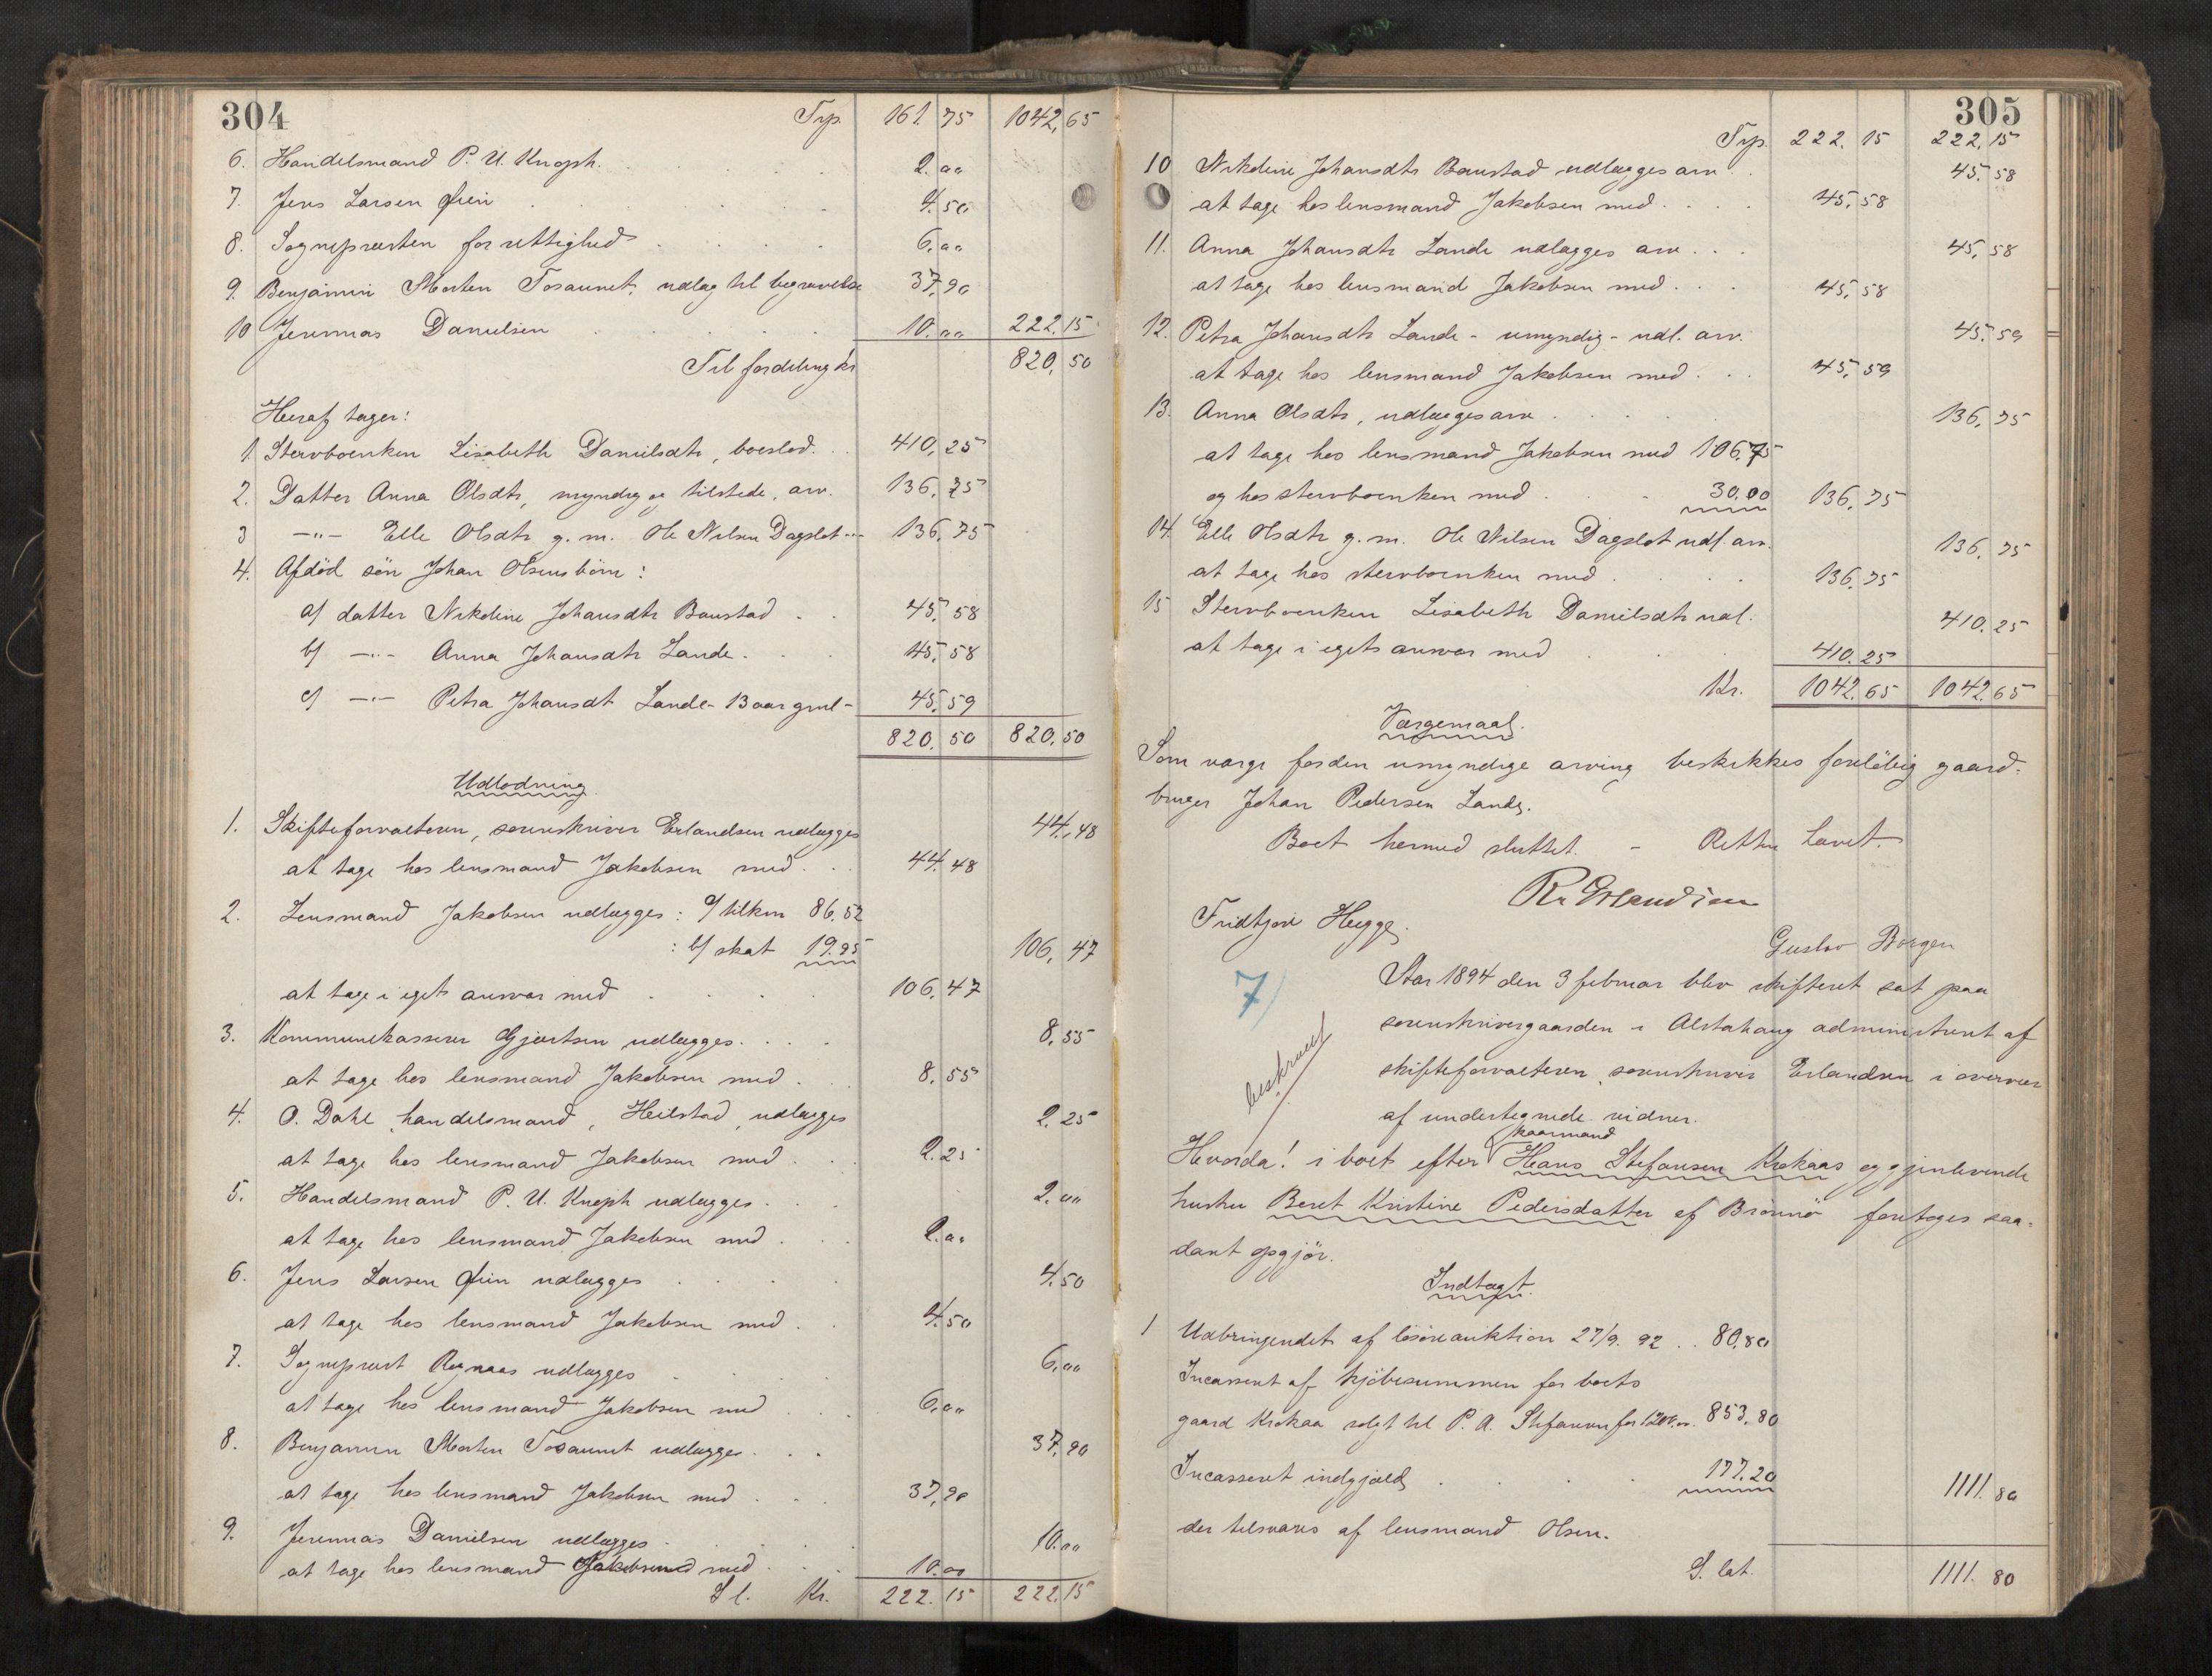 304
Trp. 161.75 1042,65
6. Handelsmand P. U. Knoph. 2.00
7. Jens Larsen Øien 4.50
8. Sognepræsten for rettighed 6.00
9. Benjamin Morten Tosaunet, udlæg til begravelse 37,90
10 Jeremias Danielsen 10.00 222.15
Til fordeling kr 820,50
Heraf tager:
1. Stervboenken Lisabeth Danielsdtr, boeslod. 410,25
2. Datter Anna Olsdtr, myndig og tilstede, arv. 136,75
3 -"- Elle Olsdtr g. m. Ole Nilsen Dagslot -"- 136,75
4. Afdød søn Johan Olsens börn:
a/ datter Nikoline Johansdtr Baustad 45,58
b/ -"- Anna Johansdtr Lande 45,58
c/ -"- Petra Johansdt Lande - 13 aar gml - 45,59
820.50 820,50
Udlodning.
1. Skifteforvalteren, sorenskriver Erlandsen udlægges 44,48
at tage hos lensmand Jakobsen med 44.48
2. Lensmand Jakobsen udlægges: a/ tilkm 86,52
: b/ skat 19.95 106,47
at tage i eget ansvar med 106.47
3. Kommunekasserer Gjærtsen udlægges 8,55
at tage hos lensmand Jakobsen med 8,55
4. O. Dahl, handelsmand, Heilstad, udlægges 2.25
at tage hos lensmand Jakobsen med 2.25
5. Handelsmand P. U. Knoph udlægges 2.00
at tage hos lensmand Jakobsen med 2.00
6. Jens Larsen Øien udlægges 4.50
at tage hos lensmand Jakobsen med 4.50
7. Sogneprest udlægges 6,00
at tage hos lensmand Jakobsen med 6,00
8. Benjamin Morten Tosaunet udlægges 37,90
at tage hos lensmand Jakobsen med 37,90
9. Jeremias Danielsen udlægges 10.00
at tage hos lensmand Jakobsen med 10.00
Sl. Kr. 222.15 222.15
305
Trp. 222.15 222,15
10 Nikoline Johansdtr Baustad udlægges arv 45,58
at tage hos lensmand Jakobsen med 45,58
11. Anna Johansdtr Lande udlægges arv 45,58
at tage hos lensmand Jakobsen med 45,58
12. Petra Johansdtr Lande - umyndig - udl. arv. 45.59
at tage hos lensmand Jakobsen med 45,59
13. Anna Olsdtr, udlægges arv 136,75
at tage hos lensmand Jakobsen med 106.75
og hos stervboenken med 30.00 136,75
14. Elle Olsdtr g. m. Ole Nilsen Dagslot udl. arv. 136,75
at tage hos stervboenken med 136,75
15 Stervboenken Lisabeth Danielsdtr udl. 410.25
at tage i eget ansvar med 410.25
Kr. 1042.65 1042.65
Værgemaal.
Som værge for den umyndige arving beskikkes foreløbig gaard-
bruger Johan Pedersen Lande.
Boet hermed sluttet. - Retten hævet.
Kr Erlandsen
Fridtjov Hegge.
Gustav Borgen
7/
Aar 1894 den 3 februar blev skifteret sat paa
sorenskrivergaarden i Alstahaug administreret af
skifteforvalteren, sorenskriver Erlandsen i overvær
beskrevet
af undertegnede vidner.
kaarmand
Hvorda! i boet efter Hans Stefansen Krokaas og gjenlevende
hustru Beret Kristine Pedersdatter af Brönnö foretoges saa-
dant opgjør.
Indtægt.
1 Udbringendet af løsøreauktion 27/9. 92 80,80
Incasseret af kjøbesummen for boets
gaard Krokaa solgt til P. A. Stefansen for 1200.00. 853,80
Incasseret indgjæld 177.20 1111.80
der tilsvares af lensmand Olsen.
S. lat. 1111.80